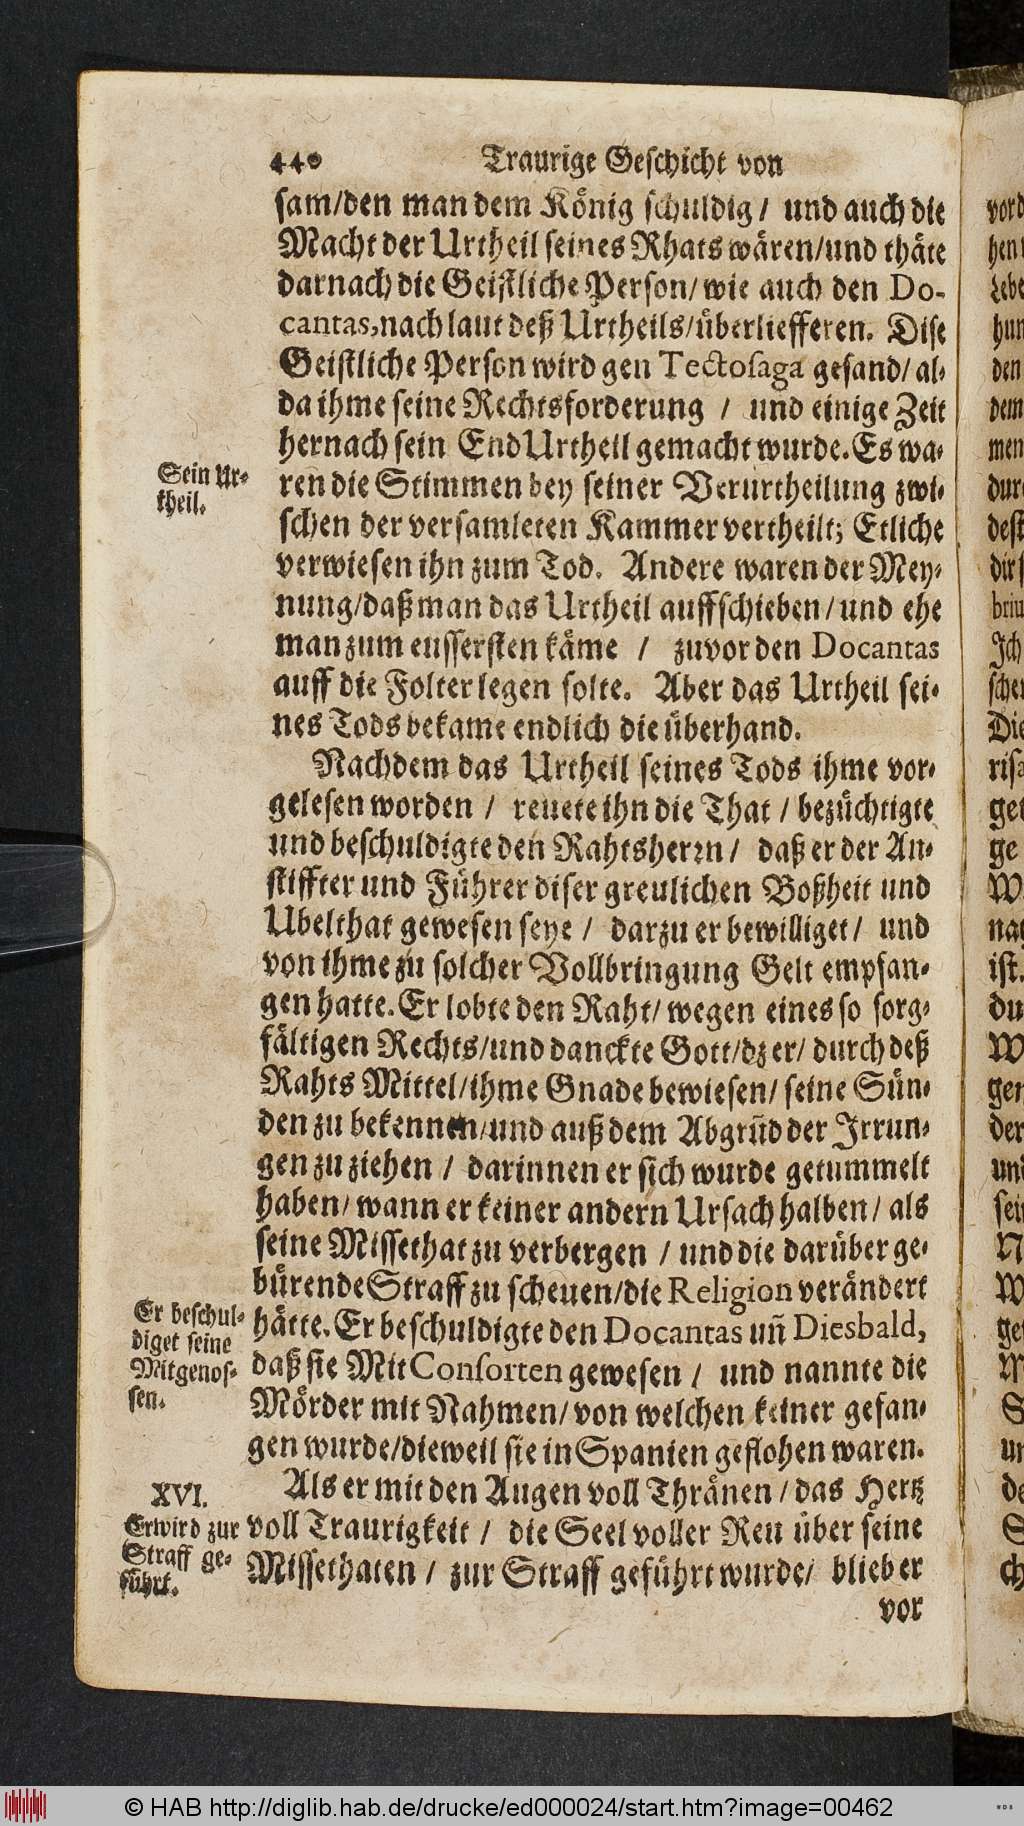 440 Traurige Geschicht von
sam/den man dem König schuldig / und auch die
Macht der Urtheil seines Rhats wären/und thäte
darnach die Geistliche Person/ wie auch den Do-
cantas, nach laut deß Urtheils/überliefferen. Dise
Geistliche Person wird gen Tectosaga gesand/ al-
da ihme seine Rechtsforderung / und einige Zeit
hernach sein End Urtheil gemacht wurde. Es wa-
Sein Ur-
theil.
ren die Stimmen bey seiner Verurtheilung zwi-
schen der versamleten Kammer vertheilt; Etliche
verwiesen ihn zum Tod. Andere waren der Mey-
nung/daß man das Urtheil auffschieben/und ehe
man zum eussersten käme / zuvor den Docantas
auff die Folter legen solte. Aber das Urtheil sei-
nes Tods bekame endlich die überhand.
Nachdem das Urtheil seines Tods ihme vor-
gelesen worden / reuete ihn die That / bezüchtigte
und beschuldigte den Rahtsherrn / daß er der An-
stiffter und Führer diser greulichen Boßheit und
Ubelthat gewesen seye / darzu er bewilliget / und
von ihme zu solcher Vollbringung Gelt empfan-
gen hatte. Er lobte den Raht/ wegen eines so sorg-
fältigen Rechts/und danckte Gott/dz er/ durch deß
Rahts Mittel/ihme Gnade bewiesen/ seine Sün-
den zu bekennen/und auß dem Abgrũd der Irrun-
gen zu ziehen / darinnen er sich wurde getummelt
haben/ wann er keiner andern Ursach halben / als
seine Missethat zu verbergen / und die darüber ge-
bürende Straff zu scheuen/die Religion verändert
Er beschul-
diget seine
Mitgenos-
sen.
hätte. Er beschuldigte den Docantas uñ Diesbald,
daß sie Mit Consorten gewesen / und nannte die
Mörder mit Nahmen/ von welchen keiner gefan-
gen wurde/dieweil sie in Spanien geflohen waren.
XVI.
Er wird zur
Straff ge-
führt.
Als er mit den Augen voll Thränen / das Hertz
voll Traurigkeit / die Seel voller Reu über seine
Missethaten / zur Straff geführt wurde/ blieb er
vor
© HAB http://diglib.hab.de/drucke/ed000024/start.htm?image=00462